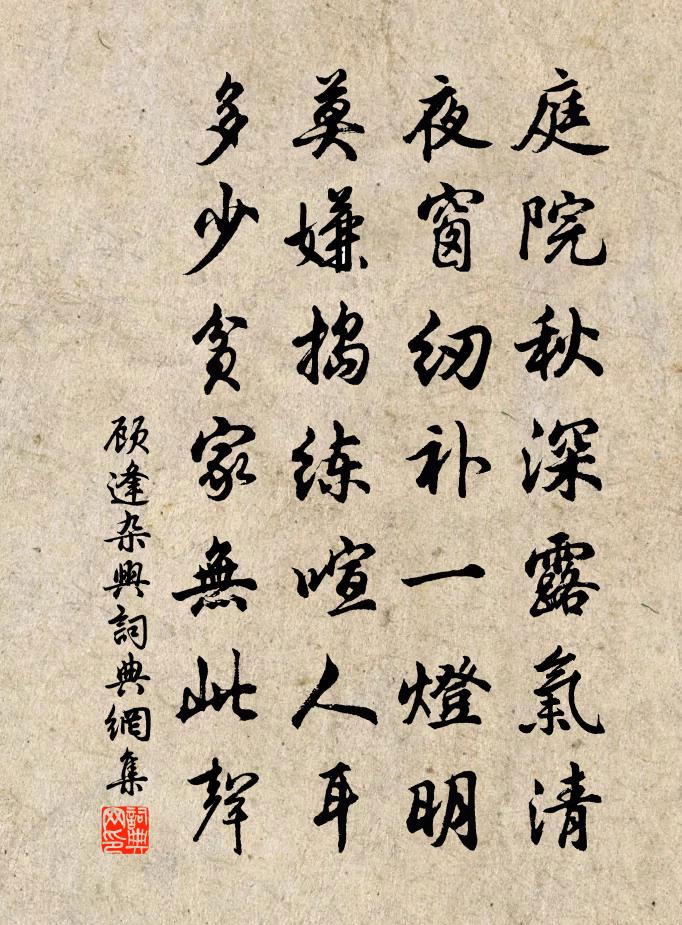 庭院秋深露氣清
夜窗紉补一燈明
莫嫌搗练喧人耳
多少貧家無此聲
顾逢杂興詞典網集
詞典網印